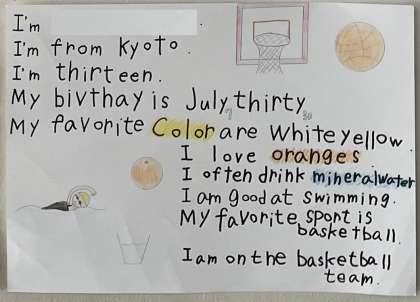 I'm
I'm from Kyoto.
I'm thirteen.
My bivthay is July thirty
7 30
My favorite Color are White yellow.
I love oranges
I often drink mineralwater
I am good at swimming.
My favorite sport is
basketball.
I am on the basketball
team.